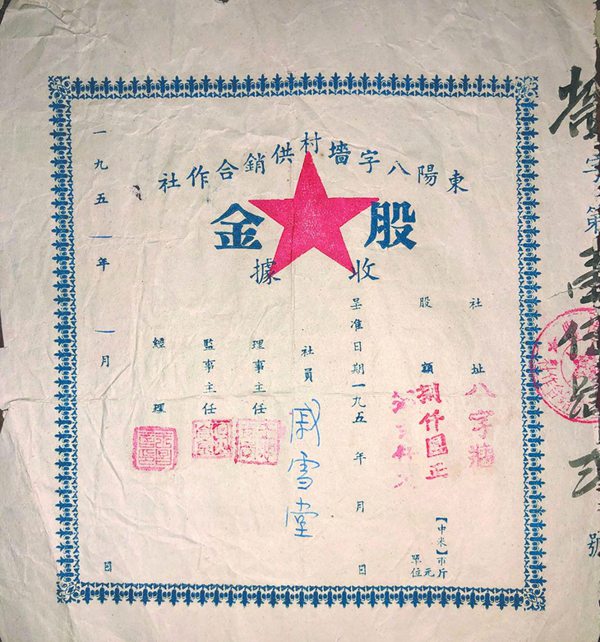 東陽八字墻村供銷合作社
股金
收據
社址 八字墻
股額 捌仟圓正
【中米】市斤
單位元
基准日期一九五 年 月 日
社員 戚雪堂
理事主任
監事主任
經理
一九五一年一月 日
字第壹 號